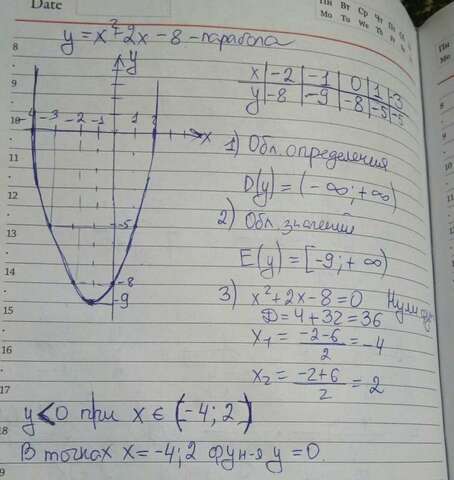 Date
Пн Вт Ср Чт Пт
Mo Tu We Th Fr
y = x²+2x-8 - парабола
x | -2 | -1 | 0 | 1 | -3
y | -8 | -9 | -8 | -5 | -5
y
-4 -3 -2 -1 1 2 x
-5
-8
-9
1) Обл. определения
D(y) = (-∞; +∞)
2) Обл. значений
E(y) = [-9; +∞)
3) x²+2x-8=0 Нули
D=4+32=36
x₁ = (-2-6)/2 = -4
x₂ = (-2+6)/2 = 2
y<0 при x ∈ (-4; 2)
В точках x=-4; 2 фун-я y=0.
8
9
10
11
12
13
14
15
16
17
18